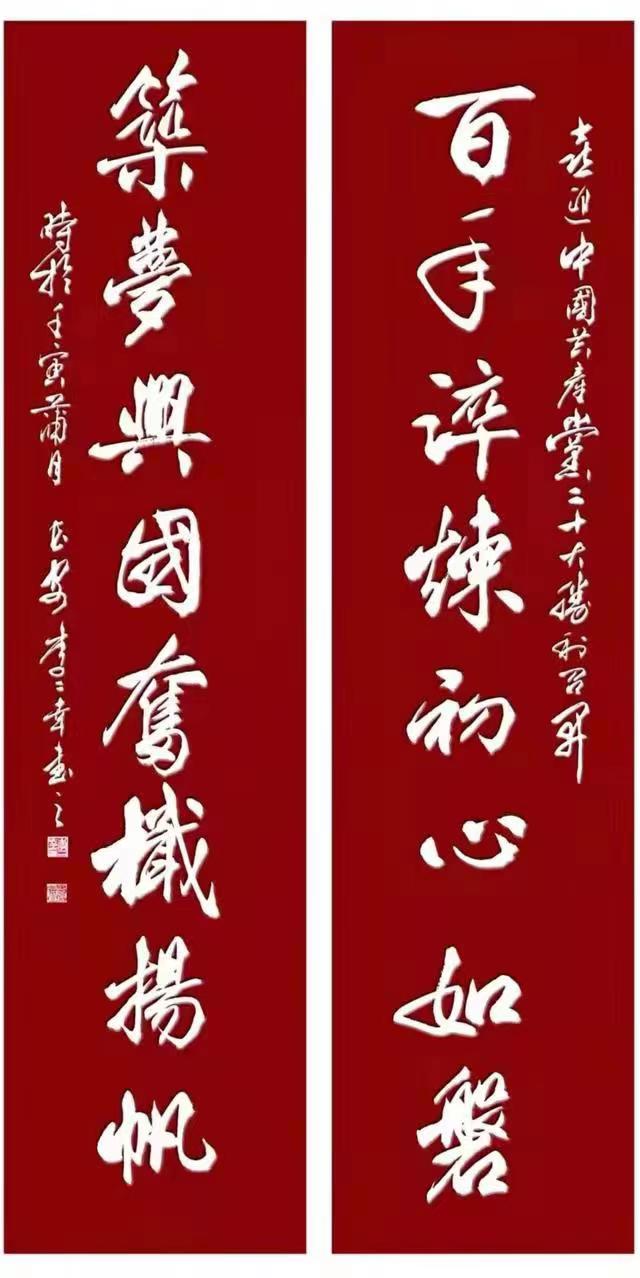 喜迎中國共產黨二十大勝利召開
百年淬煉初心如磐
築夢興國奮檝揚帆
時於壬寅蒲月 長安李二幸書之